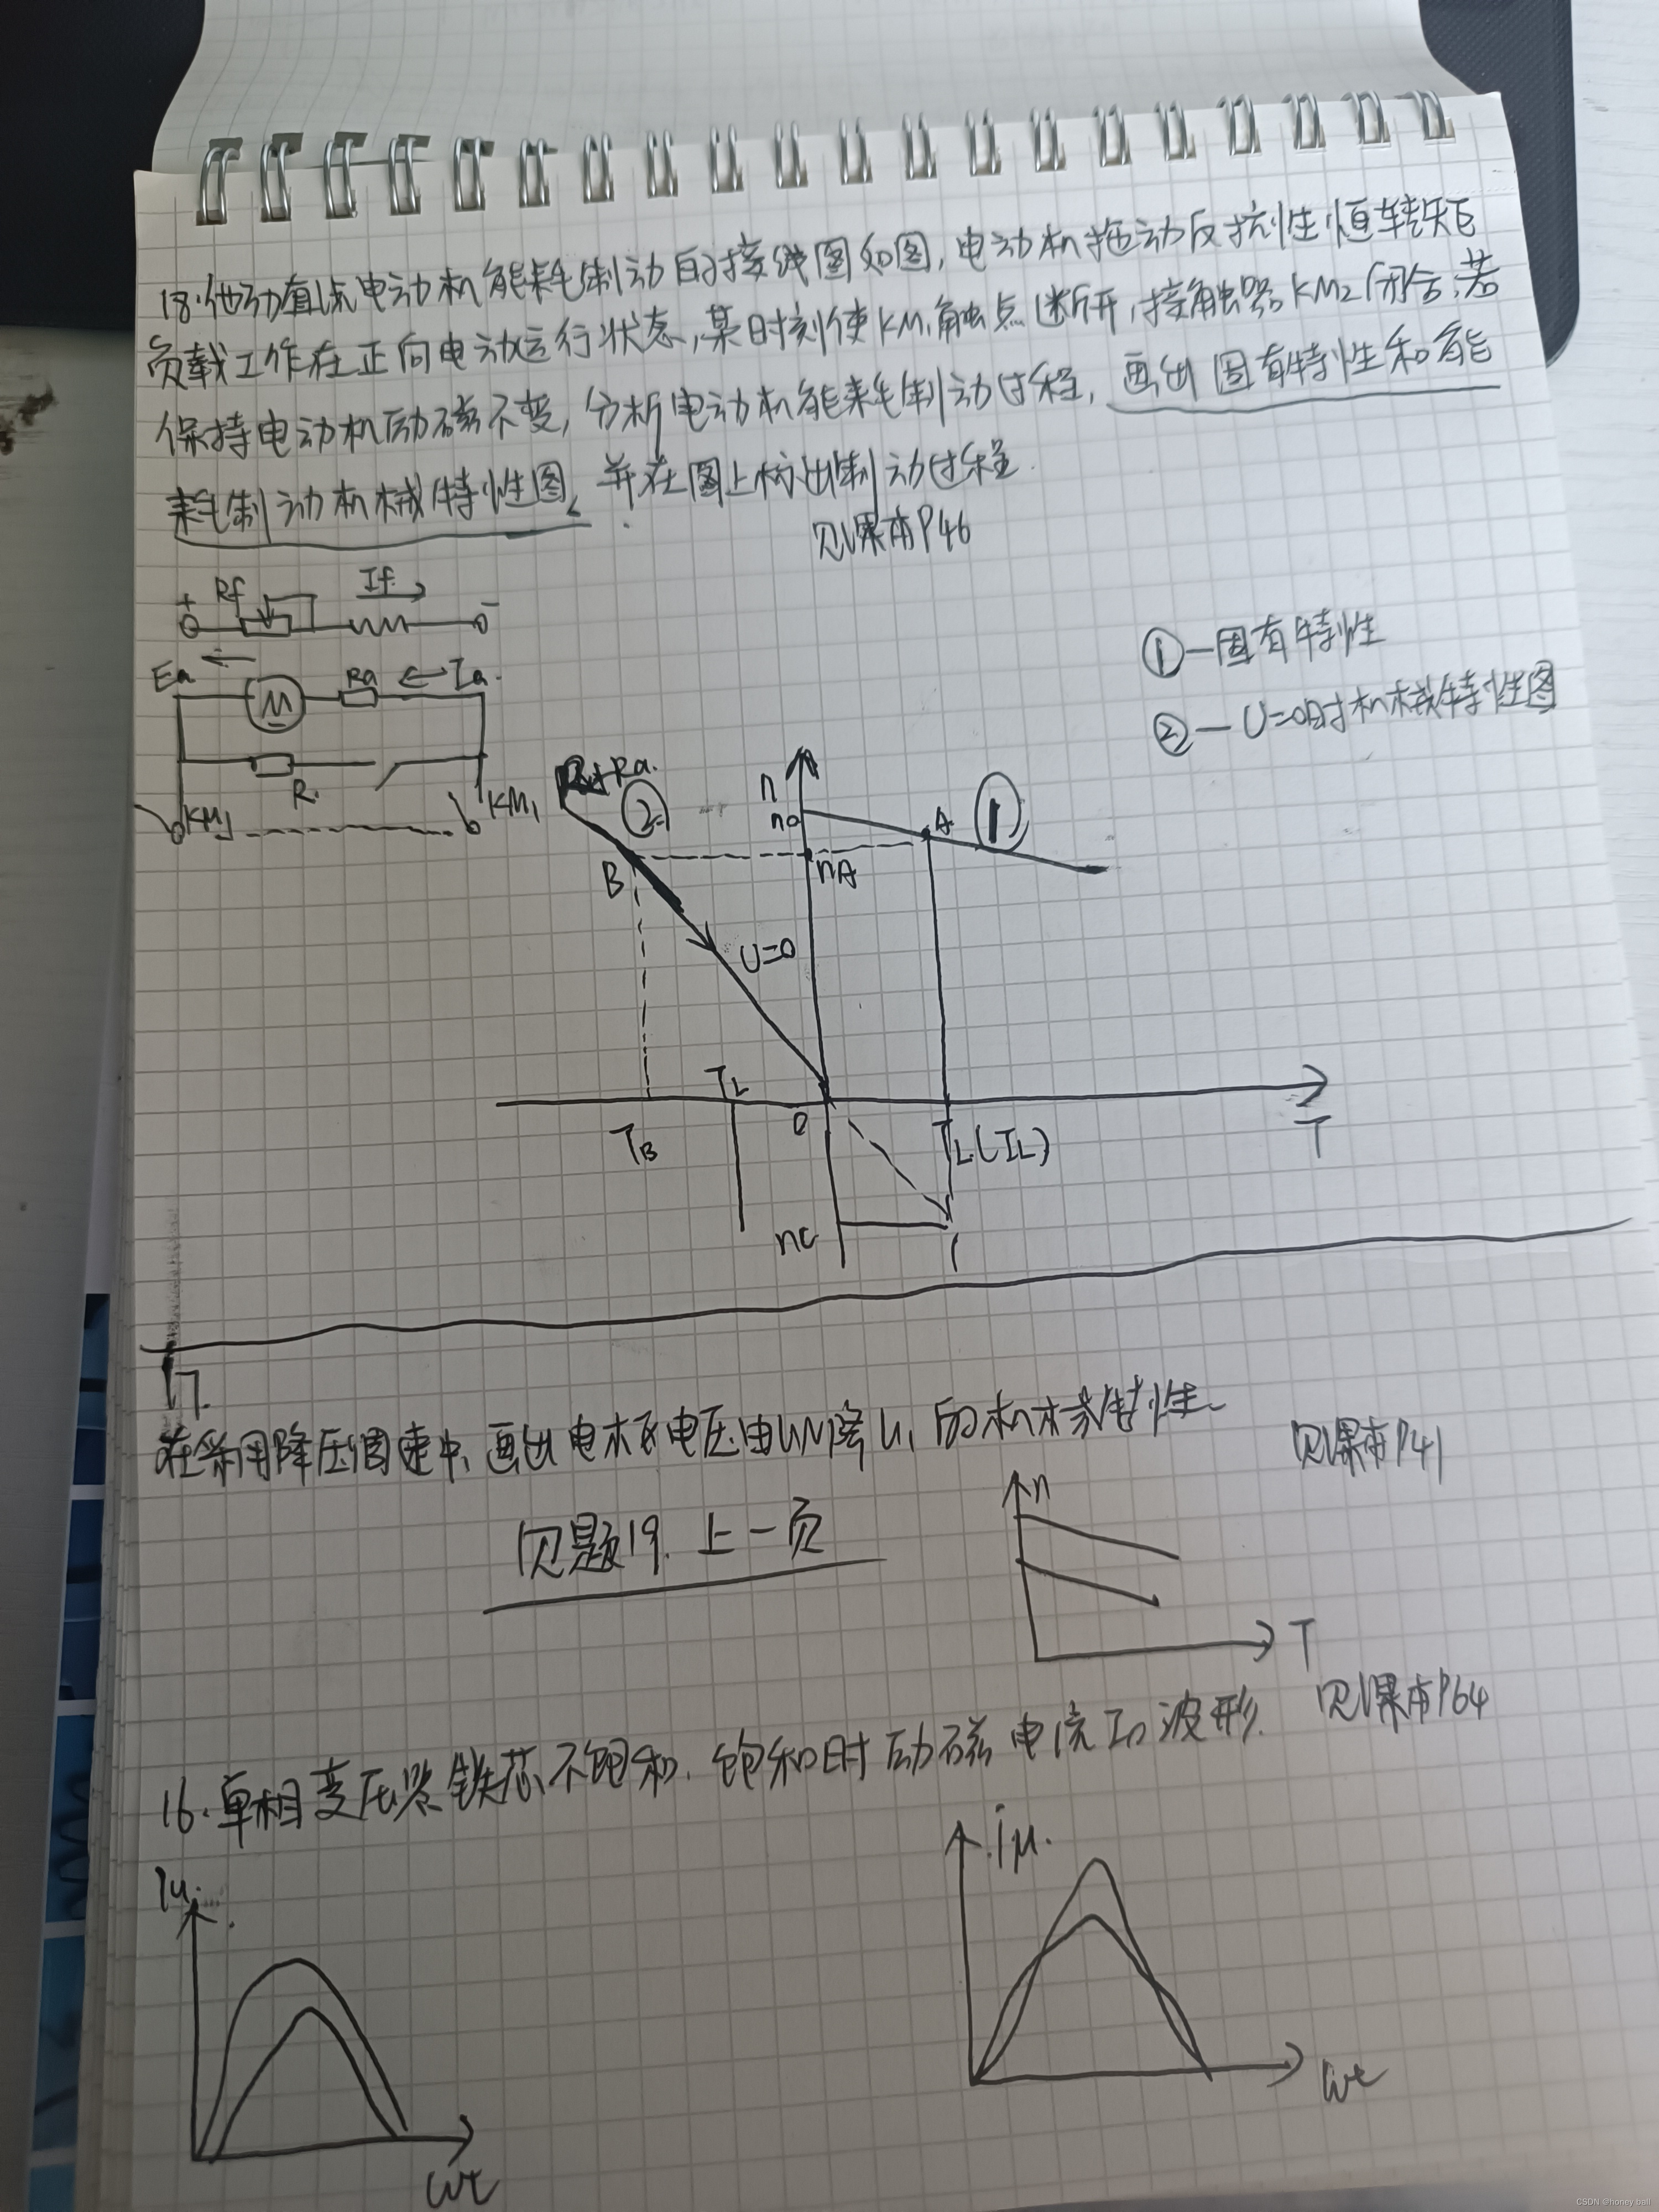 18.他励直流电动机能耗制动的接线图如图,电动机拖动反抗性恒转矩
负载工作在正向电动运行状态,某时刻使KM₁触点断开,接触器KM₂闭合,若
保持电动机励磁不变,分析电动机能耗制动过程,画出固有特性和能
耗制动机械特性图,并在图上标出制动过程.
见课本P46
+ Rf If -
Ea M Ra Ia
R
KM1 KM1
①—固有特性
②—U=0时机械特性图
+Ra. ②
n
n0
A ①
B nA
U=0
TL
TB 0 TL(IL) T
nC
17.
在采用降压调速中,画出电枢电压由UN降U1的机械特性.
见课本P41
见题19.上一页
n
T
见课本P64
16.单相变压器铁芯不饱和,饱和时励磁电流I0波形.
Iμ. iμ.
ωt ωt
CSDN @honey ball